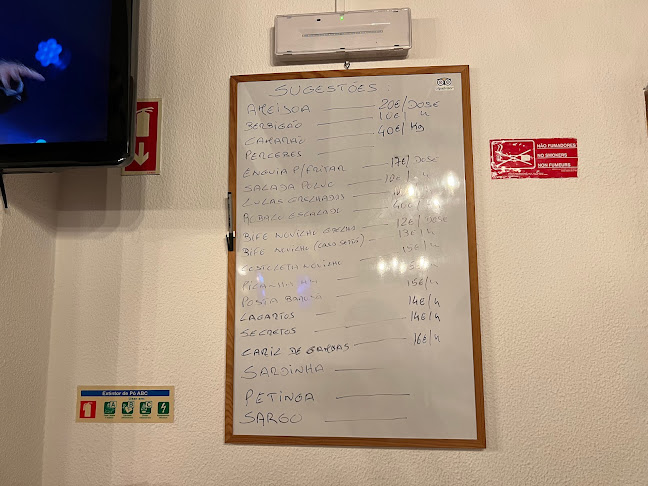 SUGESTÕES
AMEIJOA 20€/DOSE
BERBIGÃO 10€/"
CAMARÃO 40€/Kg
PERCEBES
ENGUIA P/FRITAR 17€/DOSE
SALADA POLVO
LULAS GRELHADOS
ROBALO ESCALADO
BIFE NOVILHO GRELHADO 12€/DOSE
BIFE NOVILHO 13€/"
COSTELETA NOVILHO 15€/"
PICANHA
POSTA BARROSÃ 15€/"
LAGARTOS 14€/"
SECRETOS 14€/"
CARIL DE GAMBAS 16€/"
SARDINHA
PETINGA
SARGO
NÃO FUMADORES
NO SMOKERS
NON FUMEURS
Extintor de Pó ABC